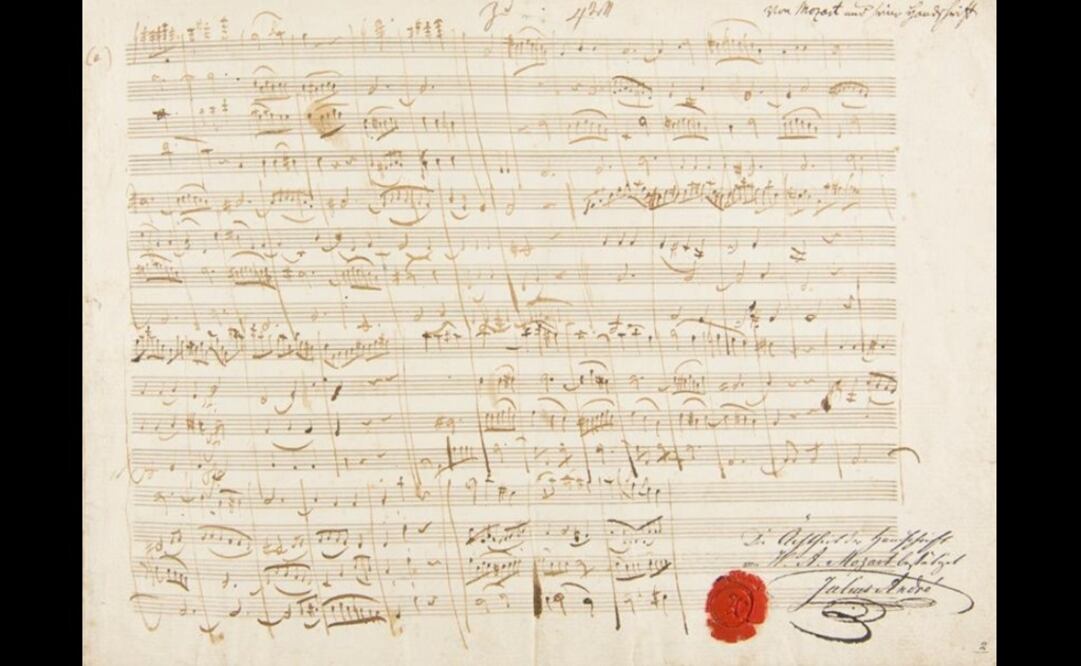 Von Mozart und seine Handschrift
Die Ächtheit der Handschrift
von W. A. Mozart bestätiget
Julius André
2